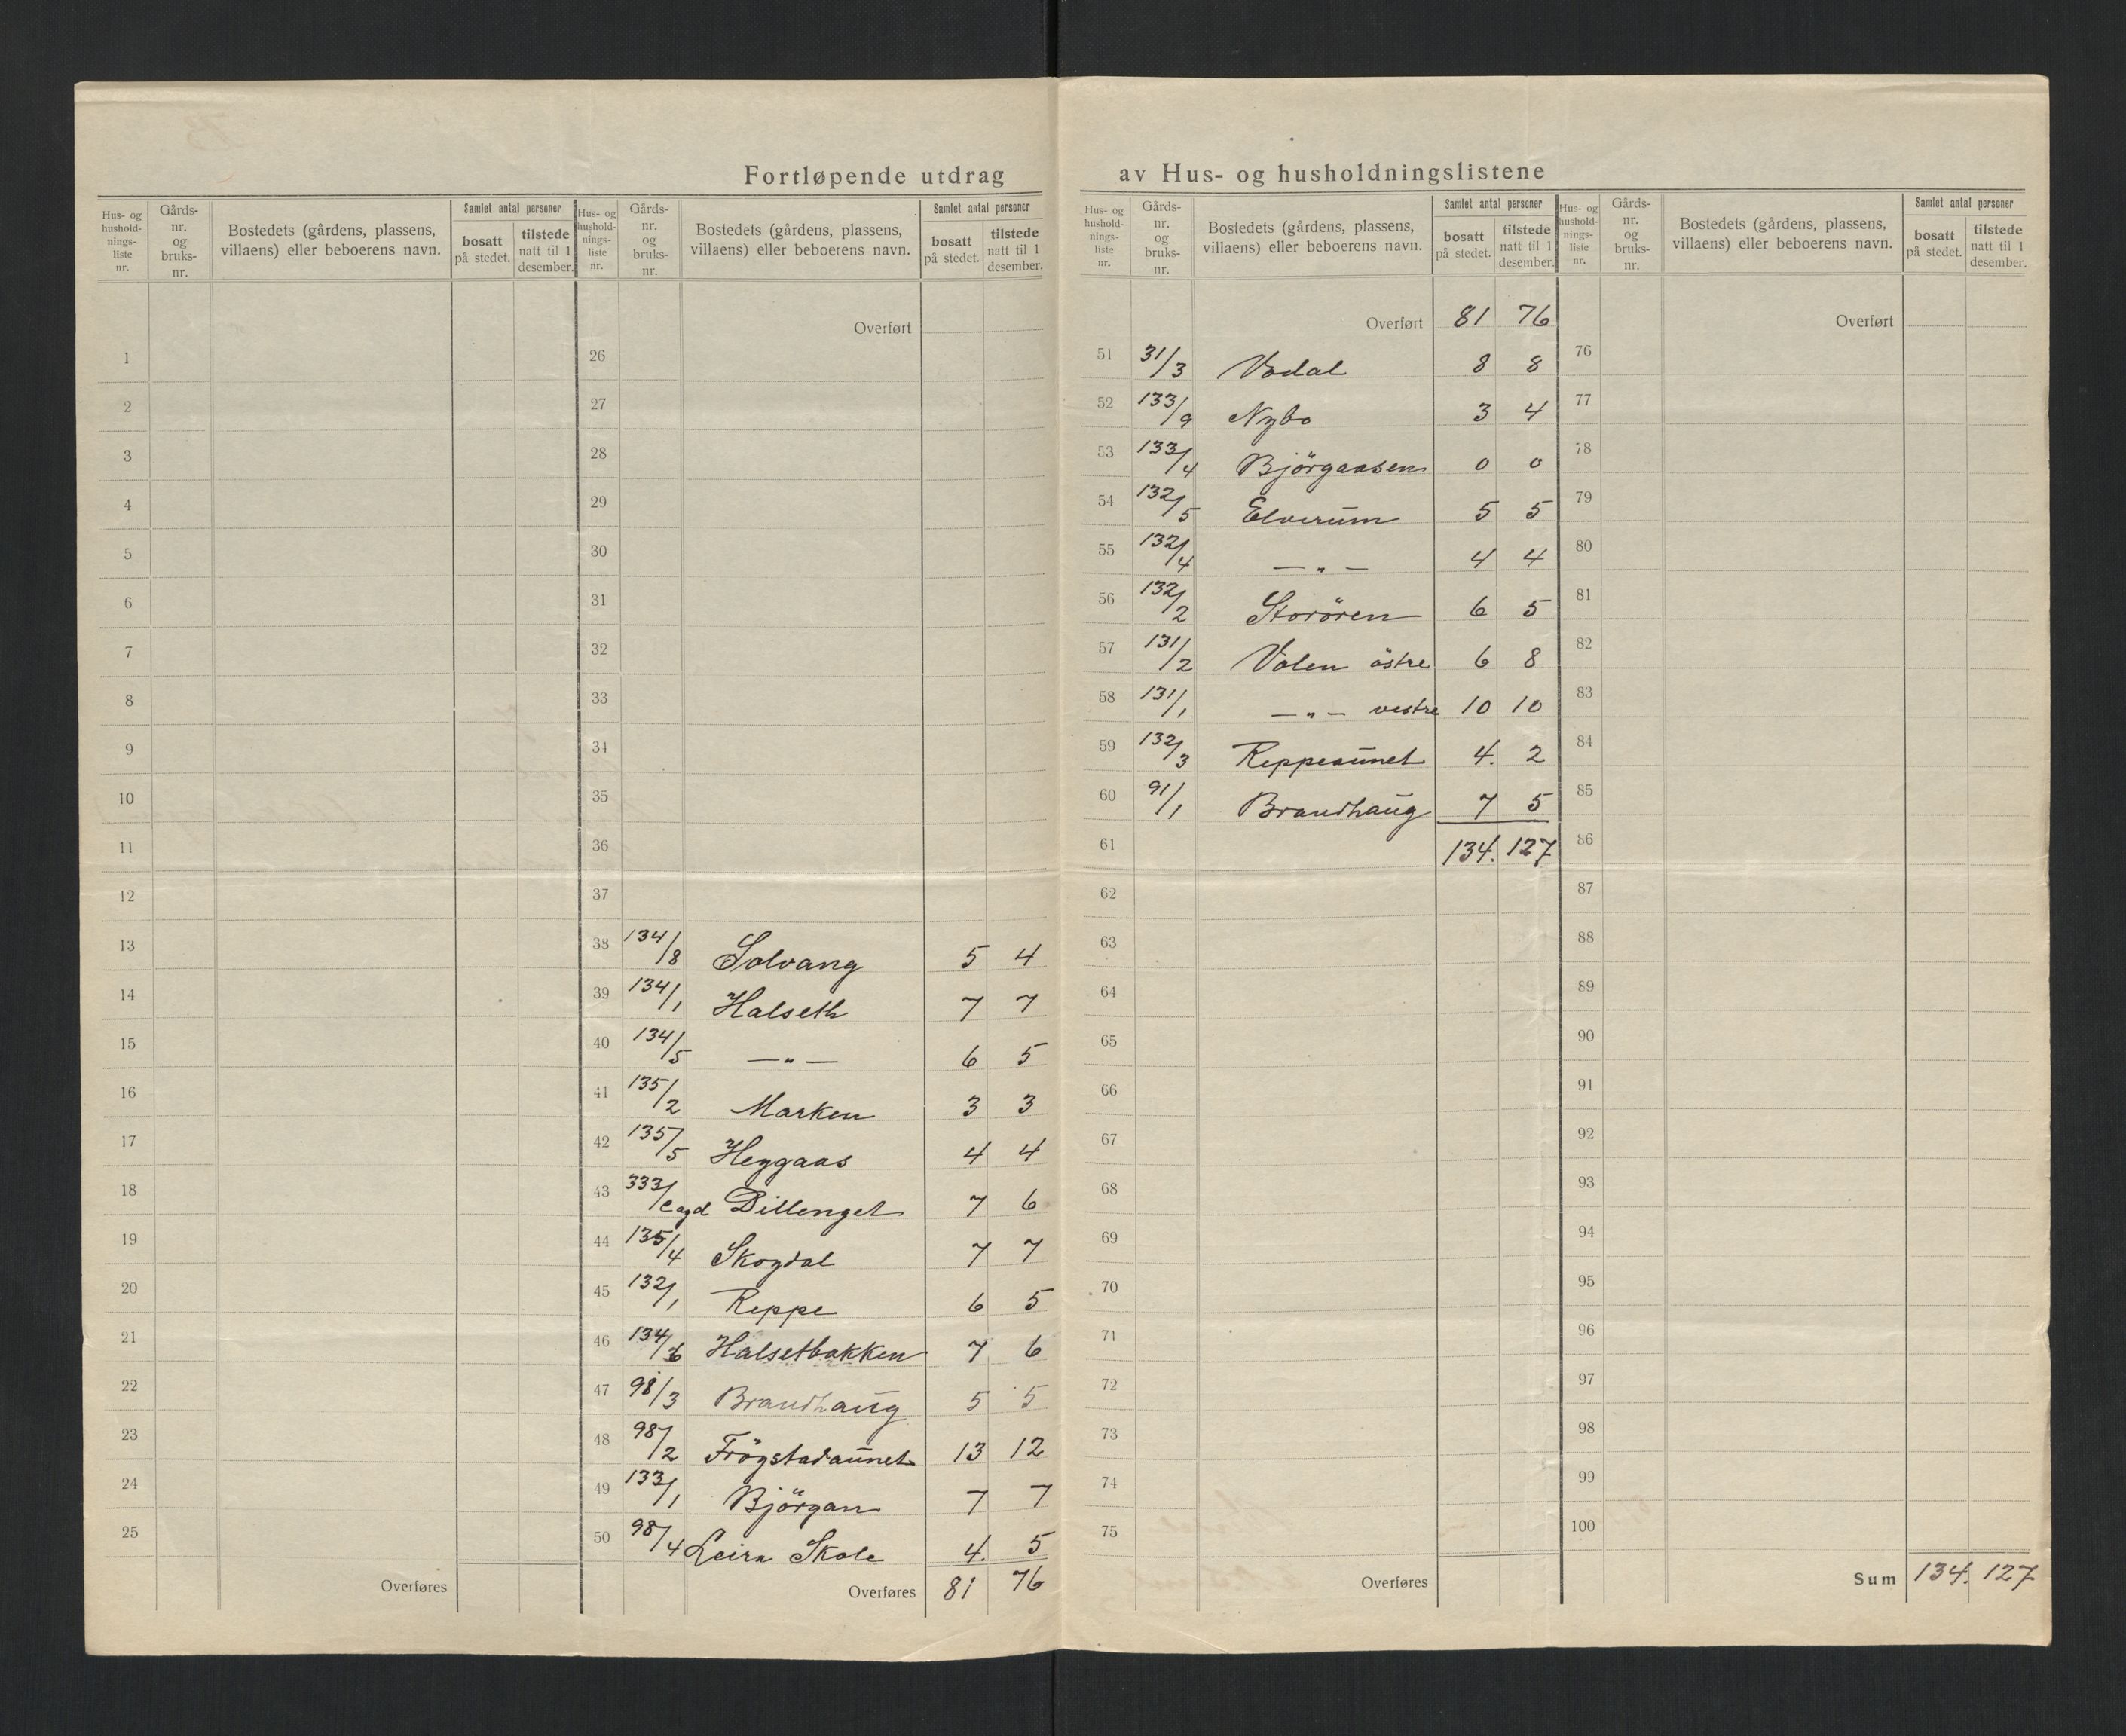 Fortløpende utdrag av Hus- og husholdningslistene
Hus- og hushold- nings- liste nr. | Gårds- nr. og bruks- nr. | Bostedets (gårdens, plassens, villaens) eller beboerens navn. | Samlet antal personer | bosatt på stedet. | tilstede natt til 1 desember.
1
2
3
4
5
6
7
8
9
10
11
12
13
14
15
16
17
18
19
20
21
22
23
24
25
Overføres
Hus- og hushold- nings- liste nr. | Gårds- nr. og bruks- nr. | Bostedets (gårdens, plassens, villaens) eller beboerens navn. | Samlet antal personer | bosatt på stedet. | tilstede natt til 1 desember.
Overført
26
27
28
29
30
31
32
33
34
35
36
37
38 134/8 Solvang 5 4
39 134/1 Halseth 7 7
40 134/5 — " — 6 5
41 135/2 Marken 3 3
42 135/5 Heggaas 4 4
43 333/ Dillenget 7 6
44 135/4 Skogdal 7 7
45 132/1 Reppe 6 5
46 134/6 Halsetbakken 7 6
47 98/3 Brandhaug 5 5
48 98/2 Frögstadaunet 13 12
49 133/1 Björgan 7 7
50 98/4 Leira Skole 4. 5
Overføres 81 76
Hus- og hushold- nings- liste nr. | Gårds- nr. og bruks- nr. | Bostedets (gårdens, plassens, villaens) eller beboerens navn. | Samlet antal personer | bosatt på stedet. | tilstede natt til 1 desember.
Overført 81 76
51 31/3 Vodal 8 8
52 133/9 Nybo 3 4
53 133/4 Björgaasen 0 0
54 132/5 Elverum 5 5
55 132/4 — " — 4 4
56 132/2 Storören 6 5
57 131/2 Volen östre 6 8
58 131/1 — " — vestre 10 10
59 132/3 Reppeaunet 4. 2
60 91/1 Brandhaug 7 5
61 134. 127
62
63
64
65
66
67
68
69
70
71
72
73
74
75
Overføres
Hus- og hushold- nings- liste nr. | Gårds- nr. og bruks- nr. | Bostedets (gårdens, plassens, villaens) eller beboerens navn. | Samlet antal personer | bosatt på stedet. | tilstede natt til 1 desember.
Overført
76
77
78
79
80
81
82
83
84
85
86
87
88
89
90
91
92
93
94
95
96
97
98
99
100
Sum 134. 127